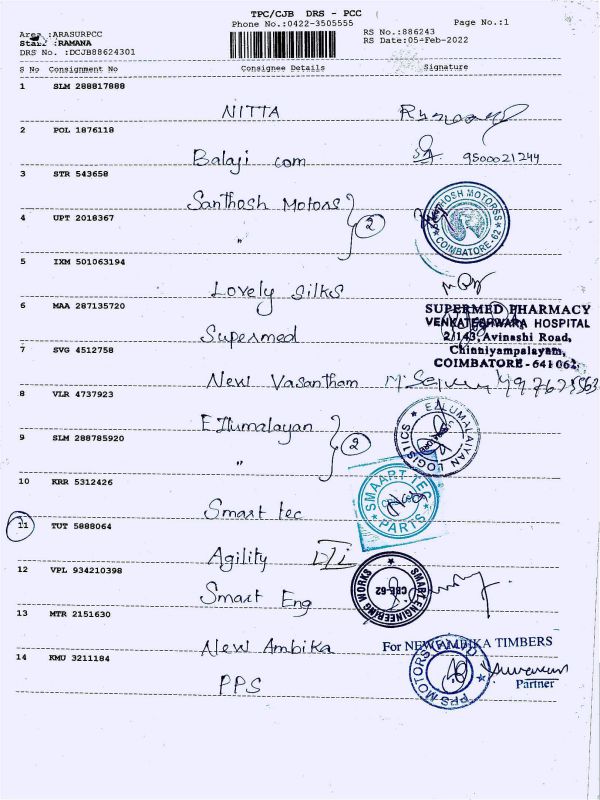 TPC/CJB DRS - PCC
Phone No.:0422-3505555
Page No.:1
Area :ARASURPCC
RS No.:886243
:RAMANA
RS Date:05-Feb-2022
DRS No. :DCJB88624301
S No Consignment No Consignee Details Signature
1 SLM 288817888
NITTA
2 POL 1876118
Balaji com 9500021244
3 STR 543658
Santhosh Motors
SANTHOSH MOTORSS COIMBATORE-62
4 UPT 2018367
" 2
5 IXM 501063194
Lovely silks
6 MAA 287135720
SUPERMED PHARMACY
VENKATESHWARA HOSPITAL
2/143, Avinashi Road,
Chinniyampalayam,
COIMBATORE - 641 062.
Supermed
7 SVG 4512758
New Vasantham
8 VLR 4737923
E.Ilumalayan
EALUMALAIYAN LOGISTICS
9 SLM 288785920
" 2
10 KRR 5312426
Smart tec
SMAART TEC PARTS
11 TUT 5888064
Agility
12 VPL 934210398
Smart Eng
SMART ENGINEERING WORKS CBE-62
13 MTR 2151630
New Ambika
For NEW AMBIKA TIMBERS
Partner
14 KMU 3211184
PPS
PPS MOTORS